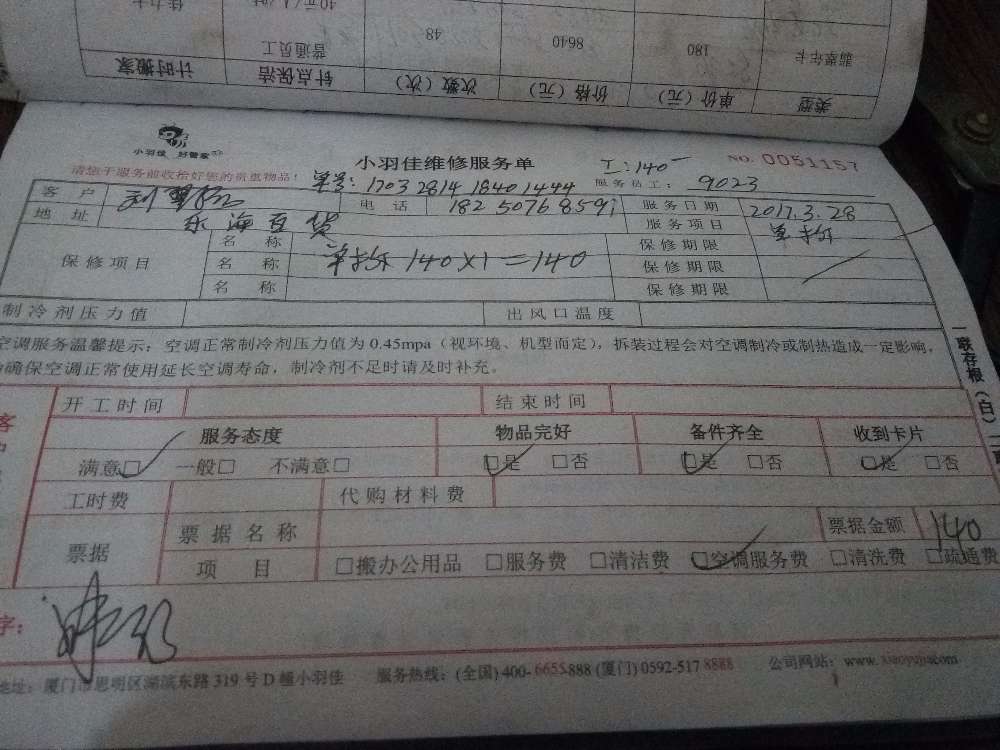 佳力卡 40元/人/时
翡翠年卡 180 8640 48 普通员工
类型 单价（元） 价格（元） 次数（次） 针点保洁 计时搬家
小羽佳 好管家
小羽佳维修服务单 工:140一 NO. 0051157
请您于服务前收检好您的贵重物品！ 单号: 1703 2814 1840 1444 服务员工: 9023
客 户 电 话 182 5076 8591 服务日期 2017.3.28
地 址 东海百货 服务项目 单拆
保修项目 名 称 保修期限
名 称 单拆 140×1=140 保修期限
名 称 保修期限
制冷剂压力值 出风口温度
空调服务温馨提示：空调正常制冷剂压力值为 0.45mpa（视环境、机型而定），拆装过程会对空调制冷或制热造成一定影响，
确保空调正常使用延长空调寿命，制冷剂不足时请及时补充。
一联存根（白）
开工时间 结束时间
客 服务态度 物品完好 备件齐全 收到卡片
满意□ 一般□ 不满意□ □是 □否 □是 □否 □是 □否
工时费 代购材料费
票据 票据名称 票据金额 140
项 目 □搬办公用品 □服务费 □清洁费 □空调服务费 □清洗费 □疏通费
字：
地址：厦门市思明区湖滨东路 319 号 D 幢小羽佳 服务热线：(全国) 400-6655-888 (厦门) 0592-517 8888 公司网站：www. xiaoyujia.com